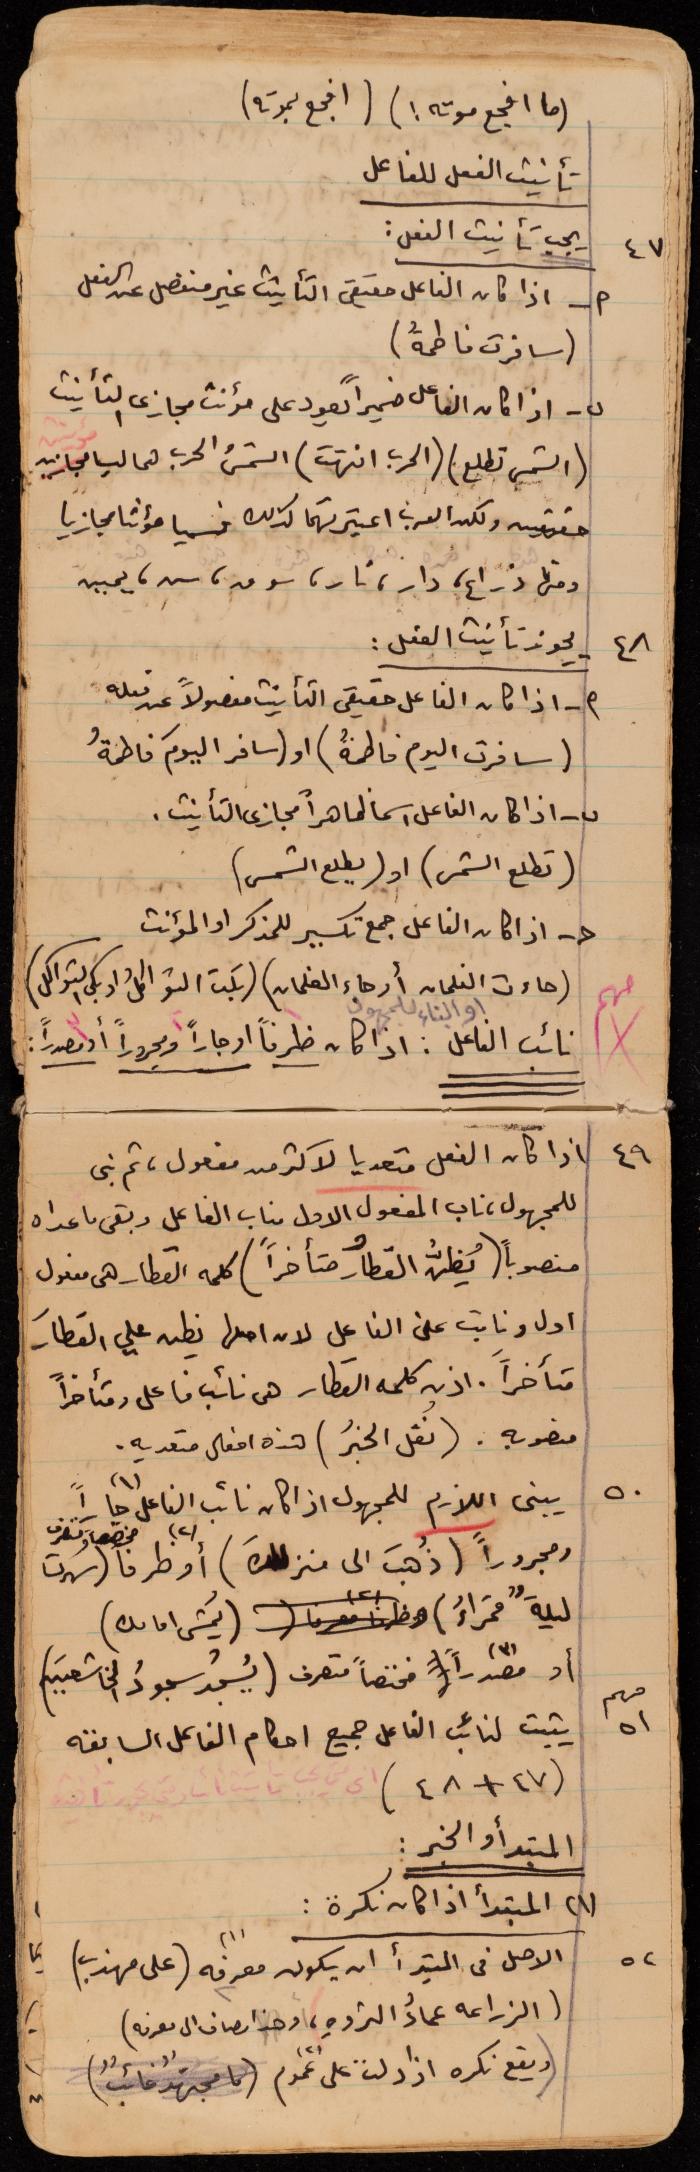 (ما افجع موته !) (افجع بموته)
تأنيث الفعل للفاعل
٤٧ يجب تأنيث الفعل :
أ- اذا كان الفاعل حقيقي التأنيث غير منفصل عن الفعل
(سافرت فاطمةُ)
ب- اذا كان الفاعل ضميراً يعود على مؤنث مجازي التأنيث
(الشمس تطلع) (الحرب انتهت) الشمسُ الحرب هما ليسا مجازيين
مؤنثين
حقيقيين ولكن العرب اعتبرتهما كذلك فسميا مؤنثا مجازيا
ومثلها ذراع، دار، نار، سوق، سن، يمين
هذه هذه هذه هذه هذه
٤٨ يجوز تأنيث الفعل :
أ- اذا كان الفاعل حقيقي التأنيث مفصولاً عن فعله
(سافرت اليوم فاطمةُ) او (سافر اليومَ فاطمةُ
ب- اذا كان الفاعل اسما ظاهراً مجازي التأنيث .
(تطلع الشمس) او (يطلع الشمس)
ج- اذا كان الفاعل جمع تكسير للمذكر او المؤنث
(جاءت الغلمان أو جاء الغلمان) (بكت الثواكلُ او بكى الثواكل)
مهم
او البناء للمجهول
نائب الفاعل : اذا كان ظرفاً او جاراً ومجروراً أو مصدراً :
٤٩ اذا كان الفعل متعديا لاكثر من مفعول، ثم بني
للمجهول، ناب المفعول الاول مناب الفاعل وبقي ما عداه
منصوباً (يُظَنُّ القطارُ متأخراً) كلمه القطار هي مفعول
اول ونابت عن الفاعل لان اصلها يظن علي القطارَ
متأخراً . اذن كلمه القطار هي نائب فاعل ومتأخراً
منصوبه . (نُقل الخبرُ) هذه افعال متعديه .
٥٠ يبنى اللازم للمجهول اذا كان نائب الفاعل (١) جاراً
ومجروراً (ذُهبَ الى منزلكَ) (٢) أو ظرفاً مختصاً متصرف (سُهرت
ليلةٌ قمراءُ) (يُمشى امامك)
أو (٣) مصدراً مختصاً متصرف (يُسجدُ سجودُ الخاشعين)
مهم
٥١ يثبت لنائب الفاعل جميع احكام الفاعل السابقه
(٤٧ + ٤٨)
المبتدأ والخبر :
(١) المبتدأ اذا كان نكرة :
٥٢ الاصل في المبتدأ ان يكون (١) معرفه (علي مهذب)
(الزراعه عمادُ الثروهِ، وهذا مضاف الى معرفه)
(ويقع نكره اذا دلت على (٢) عموم (ما مجتهدٌ خائبٌ)